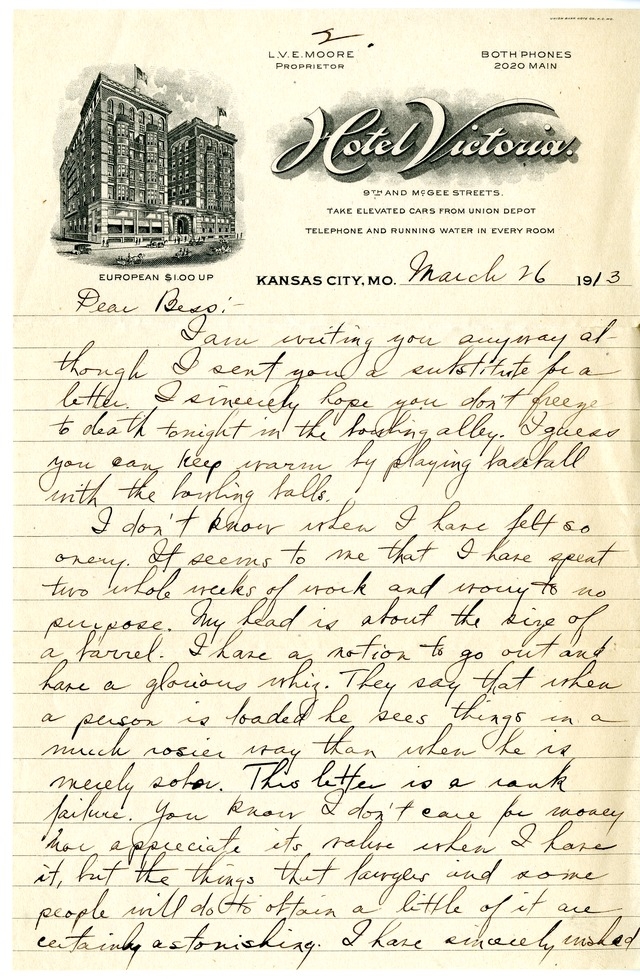 2.
L.V.E. MOORE
PROPRIETOR
BOTH PHONES
2020 MAIN
Hotel Victoria.
9TH AND McGEE STREETS.
TAKE ELEVATED CARS FROM UNION DEPOT
TELEPHONE AND RUNNING WATER IN EVERY ROOM
EUROPEAN $1.00 UP
KANSAS CITY, MO. March 26 1913
Dear Bess:-
I am writing you anyway al-
though I sent you a substitute for a
letter. I sincerely hope you don't freeze
to death tonight in the bowling alley. I guess
you can keep warm by playing baseball
with the bowling balls.
I don't know when I have felt so
onery. It seems to me that I have spent
two whole weeks of work and worry to no
purpose. My head is about the size of
a barrel. I have a notion to go out and
have a glorious whiz. They say that when
a person is loaded he sees things in a
much rosier way than when he is
merely sober. This letter is a rank
failure. You know I don't care for money
nor appreciate its value when I have
it, but the things that lawyers and some
people will do to obtain a little of it are
certainly astonishing. I have sincerely wished